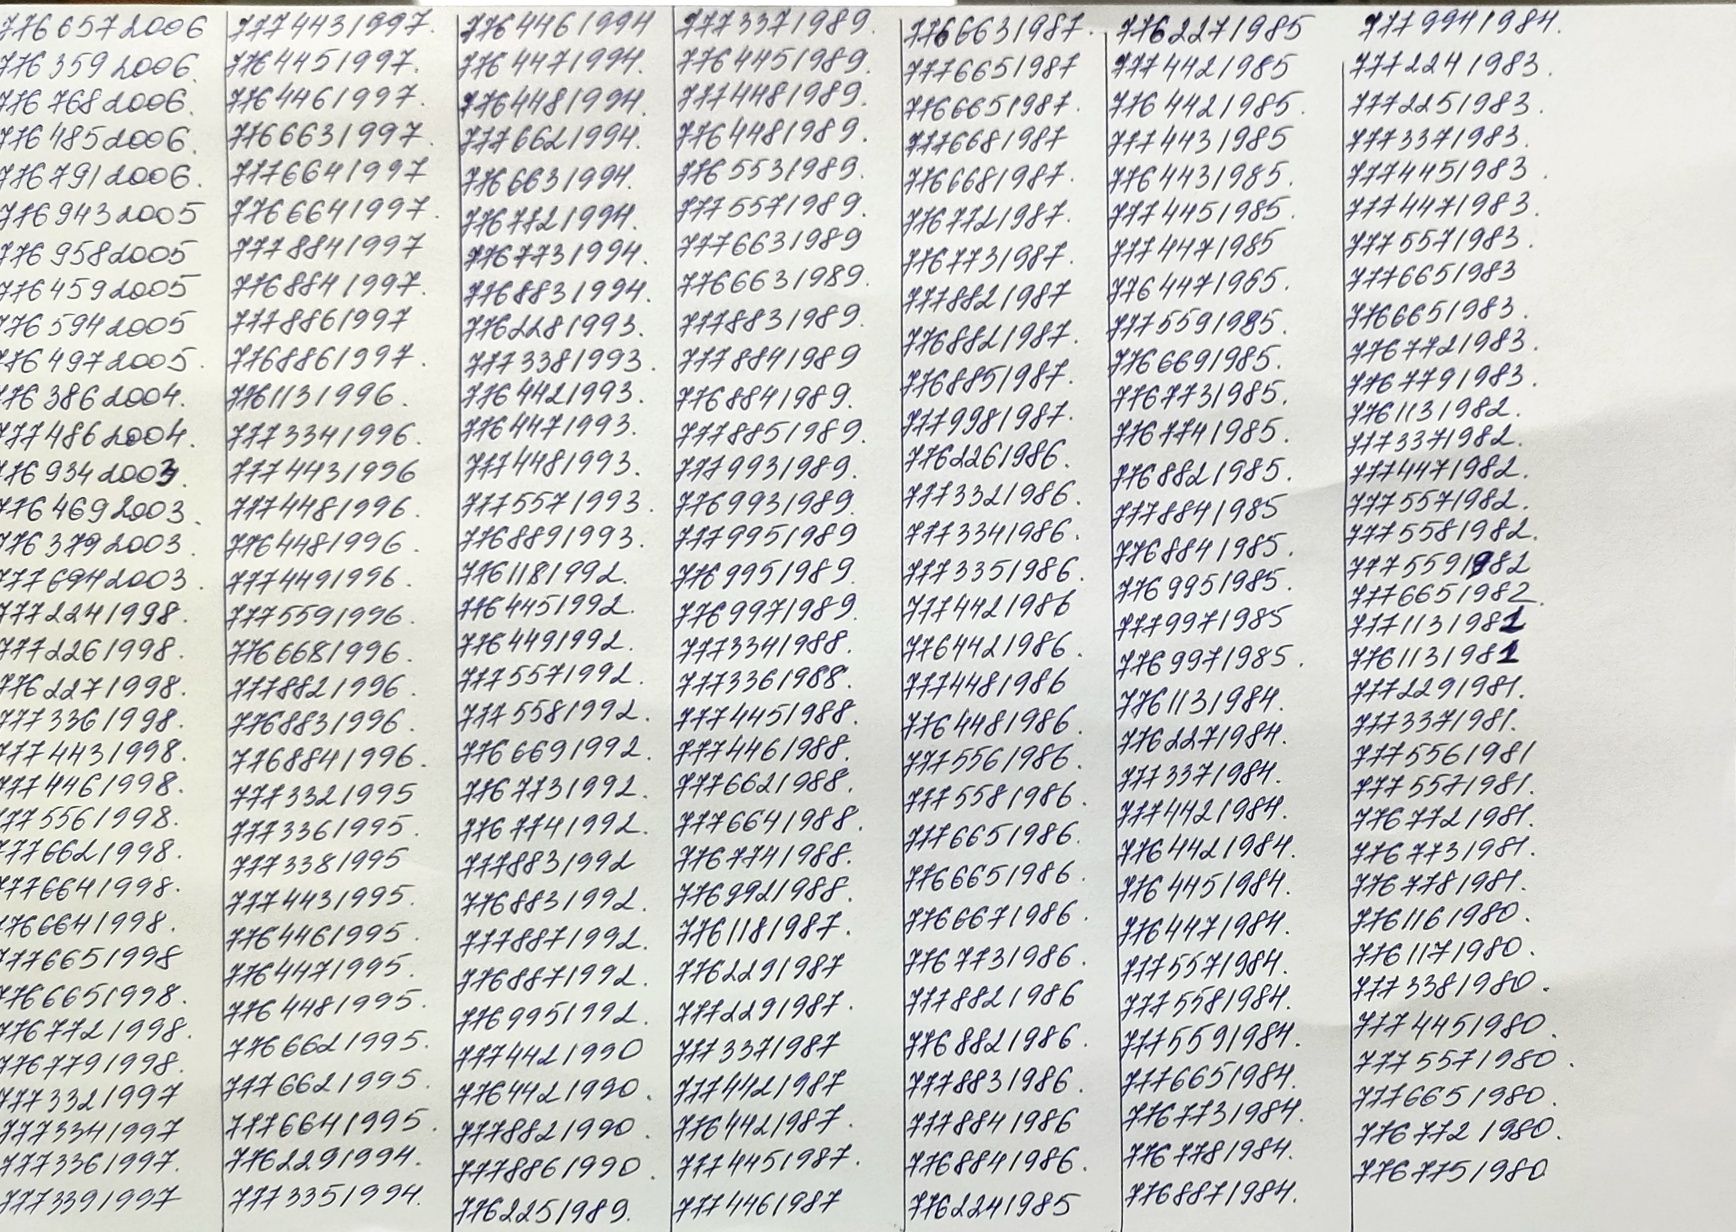 7766572006
7763592006.
7767682006.
7764852006.
7767912006.
7769432005
7769582005
7764592005
7765942005
7764972005.
7763862004.
7774862004.
7769342003.
7764692003.
7763792003.
7776942003.
7772241998.
7772261998.
7762271998.
7773361998.
7774431998.
7774461998.
7775561998.
7776621998.
7776641998.
7766641998.
7776651998
7766651998.
7767721998.
7767791998.
7773321997
7773341997
7773361997.
7773391997
7774431997.
7764451997.
7764461997.
7766631997.
7776641997
7766641997.
7778841997
7768841997.
7778861997
7768861997.
7761131996.
7773341996.
7774431996
7774481996.
7764481996.
7774491996.
7775591996.
7766681996.
7778821996.
7768831996.
7768841996.
7773321995
7773361995.
7773381995
7774431995.
7764461995.
7764471995.
7764481995.
7766621995.
7776621995.
7776641995.
7762291994.
7773351994.
7764461994
7764471994.
7764481994.
7776621994.
7766631994.
7767721994.
7767731994.
7768831994.
7762281993.
7773381993.
7764421993.
7764471993.
7774481993.
7775571993.
7768891993.
7761181992.
7764451992.
7764491992.
7775571992.
7775581992.
7766691992.
7767731992.
7767741992.
7778831992
7768831992.
7778871992.
7768871992.
7769951992.
7774421990
7764421990.
7778821990.
7778861990.
7762251989.
7773371989.
7764451989.
7774481989.
7764481989.
7765531989.
7775571989.
7776631989
7766631989.
7778831989.
7778841989
7768841989.
7778851989.
7779931989.
7769931989.
7779951989
7769951989.
7769971989.
7773341988.
7773361988.
7774451988.
7774461988.
7776621988.
7776641988.
7767741988.
7769921988.
7761181987.
7762291987
7772291987.
7773371987
7774421987
7764421987.
7774451987.
7774461987
7766631987.
7776651987
7766651987.
7776681987
7766681987.
7767721987.
7767731987.
7778821987
7768821987.
7768851987.
7779981987.
7762261986.
7773321986.
7773341986.
7773351986.
7774421986
7764421986.
7774481986
7764481986.
7775561986.
7775581986.
7776651986.
7766651986.
7766671986.
7767731986.
7778821986
7768821986.
7778831986.
7778841986
7768841986.
7762241985
7762271985
7774421985
7764421985.
7774431985
7764431985.
7774451985.
7774471985
7764471965.
7775591985.
7766691985.
7767731985.
7767741985.
7768821985.
7778841985
7768841985.
7769951985.
7779971985
7769971985.
7761131984.
7762271984.
7773371984.
7774421984.
7764421984.
7764451984.
7764471984.
7775571984.
7775581984.
7775591984.
7776651984.
7767731984.
7767781984.
7768871984.
7779941984.
7772241983.
7772251983.
7773371983.
7774451983.
7774471983.
7775571983.
7776651983
7766651983.
7767721983.
7767791983.
7761131982.
7773371982.
7774471982.
7775571982.
7775581982.
7775591982
7776651982.
7771131981
7761131981
7772291981.
7773371981.
7775561981
7775571981.
7767721981.
7767731981.
7767781981.
7761161980.
7761171980.
7773381980.
7774451980.
7775571980.
7776651980.
7767721980.
7767751980